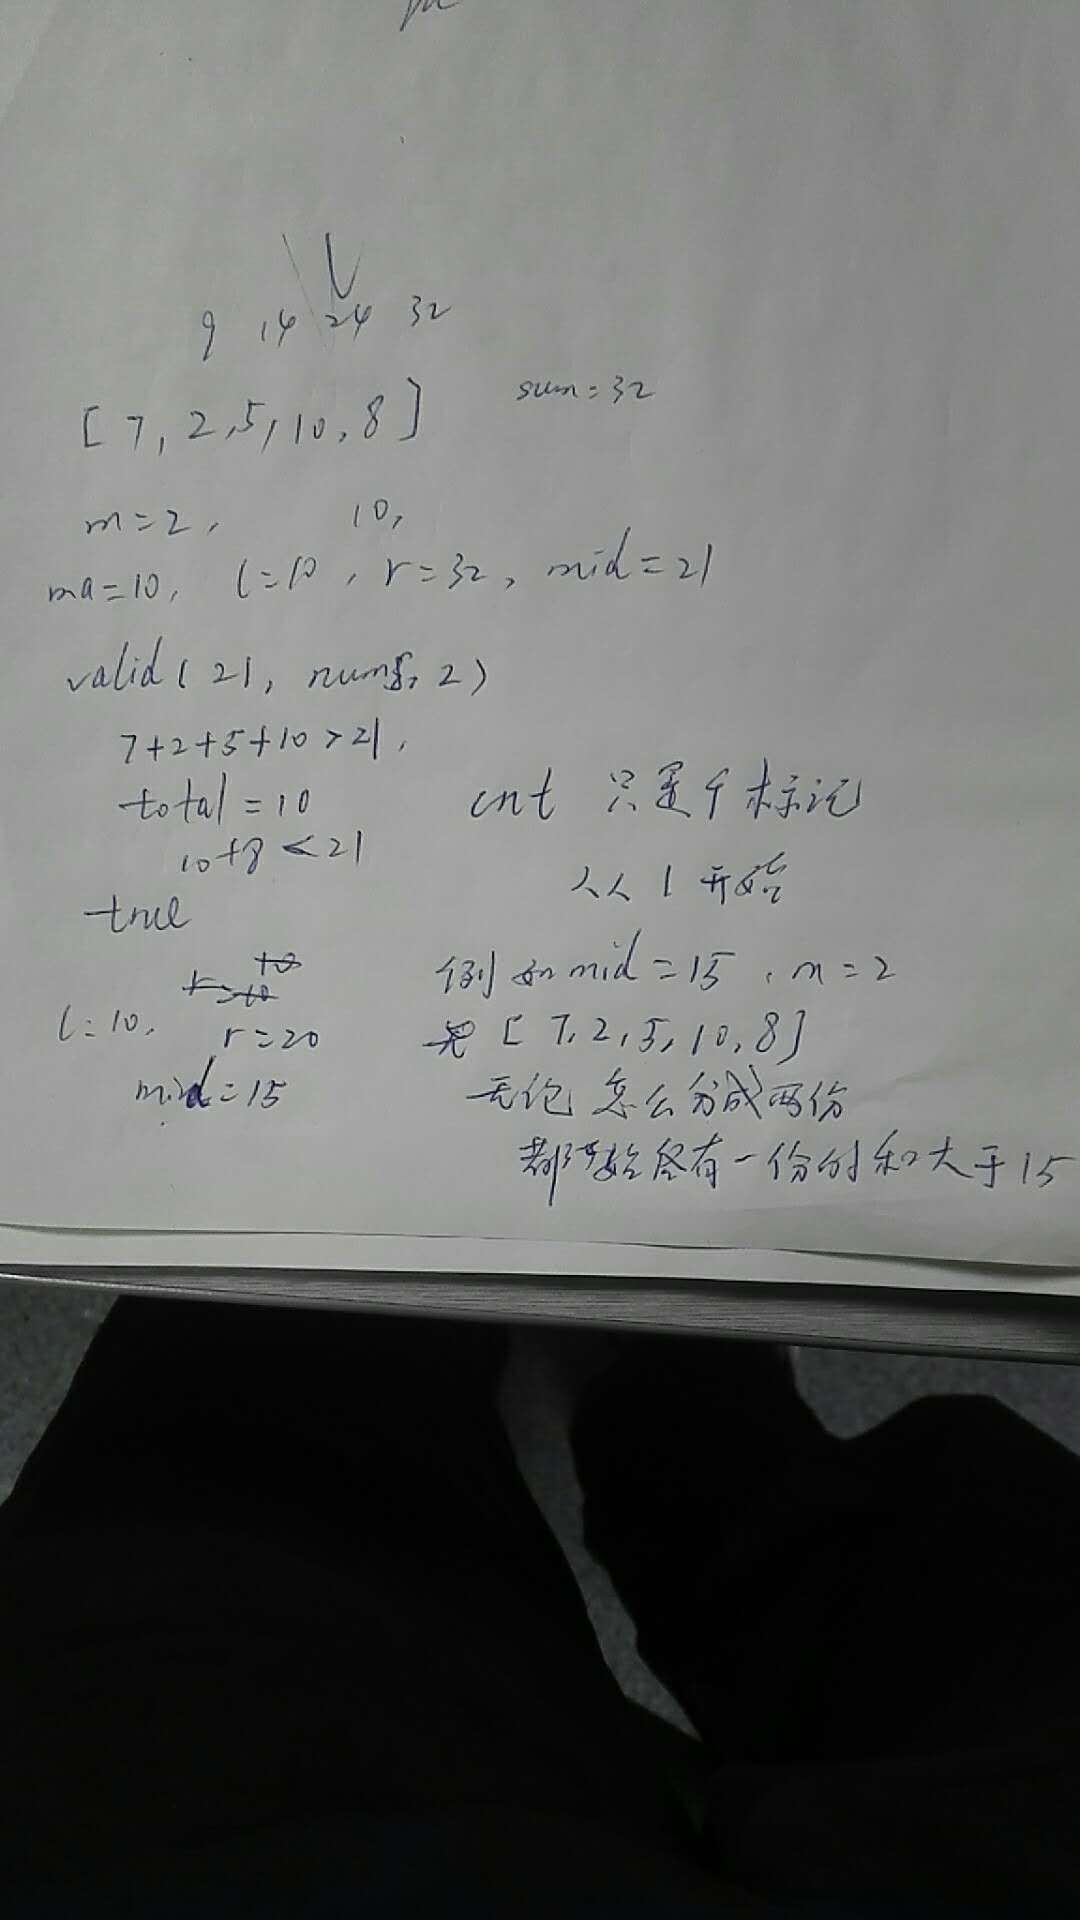 9 14 24 32
[7, 2, 5, 10, 8] sum=32
m=2, 10,
ma=10, l=10, r=32, mid=21
valid(21, nums, 2)
7+2+5+10>21,
total=10
10+8<21
true
l=10, r=20
mid=15
cnt 只是个标记
从 1 开始
例如mid=15, m=2
[7,2,5,10,8]
无论怎么分成两份
都始终有一份的和大于15